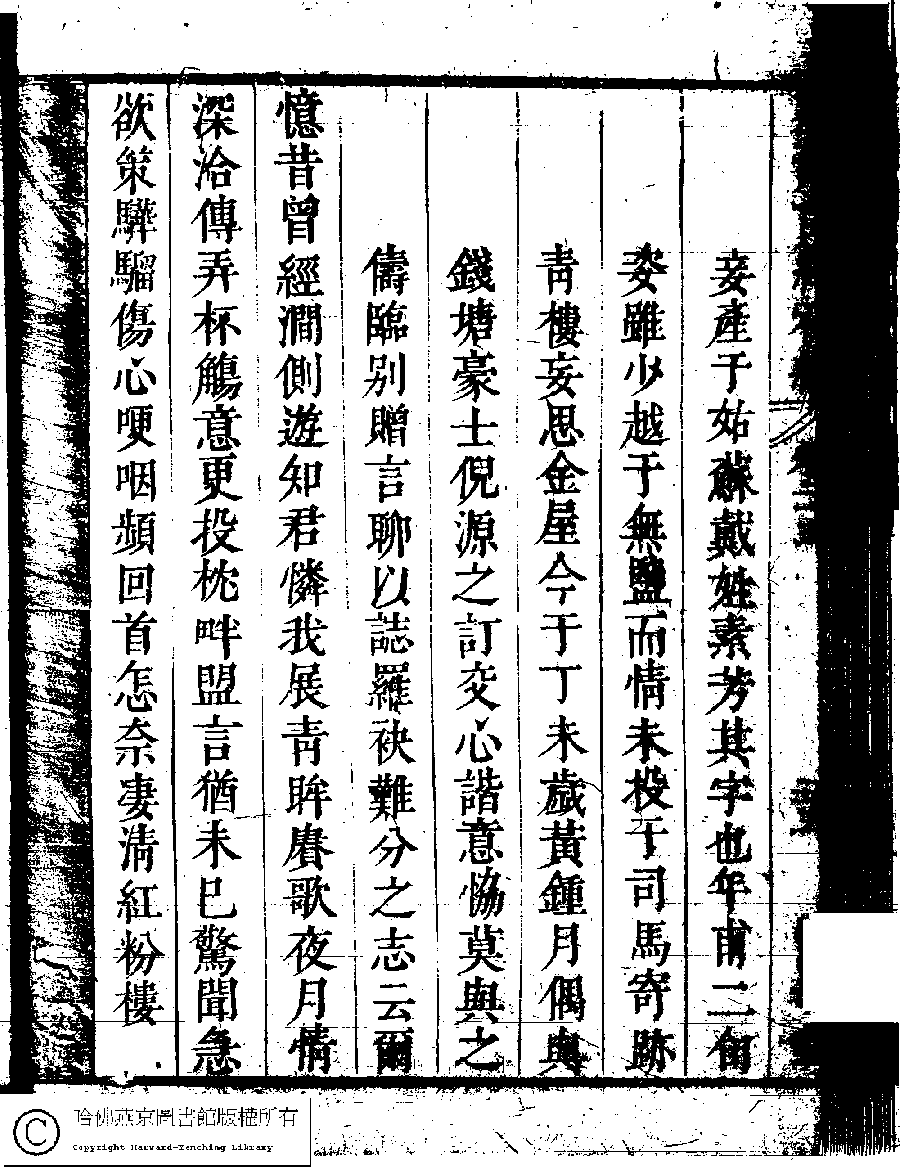 妾產于姑蘇戴姓素芳其字也年甫二旬
姿雖少越于無鹽而情未投于司馬寄跡
青樓妄思金屋今于丁未歲黃鍾月偶與
錢塘豪士倪源之訂交心諧意恊莫與之
儔臨別贈言聊以誌羅袂難分之志云爾
憶昔曾經澗側遊知君憐我展青眸賡歌夜月情
深洽傳弄杯觴意更投枕畔盟言猶未已驚聞急
欲策驊騮傷心哽咽頻回首怎奈淒清紅粉樓
哈佛燕京圖書館版權所有
Copyright Harvard-Yenching Library